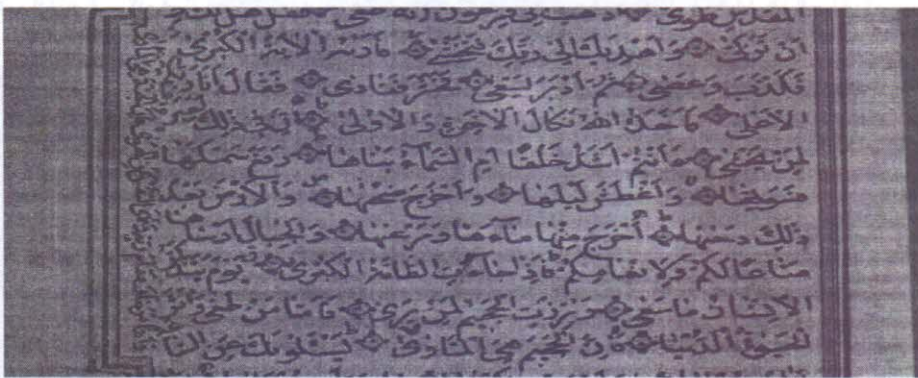 المقدس طوى اذهب الى فرعون انه طغى فقل هل لك الى
ان تزكى واهديك الى ربك فتخشى فاريه الاية الكبرى
فكذب وعصى ثم ادبر يسعى فحشر فنادى فقال انا ربكم
الاعلى فاخذه الله نكال الاخرة والاولى ان في ذلك
لمن يخشى ءانتم اشد خلقا ام السماء بناها رفع سمكها
فسويها واغطش ليلها واخرج ضحيها والارض بعد
ذلك دحيها اخرج منها ماءها ومرعيها والجبال ارسيها
متاعا لكم ولانعامكم فاذا جاءت الطامة الكبرى يوم يتذكر
الانسان ما سعى وبرزت الجحيم لمن يرى فاما من طغى واثر
الحيوة الدنيا فان الجحيم هي الماوى يسئلونك عن السا